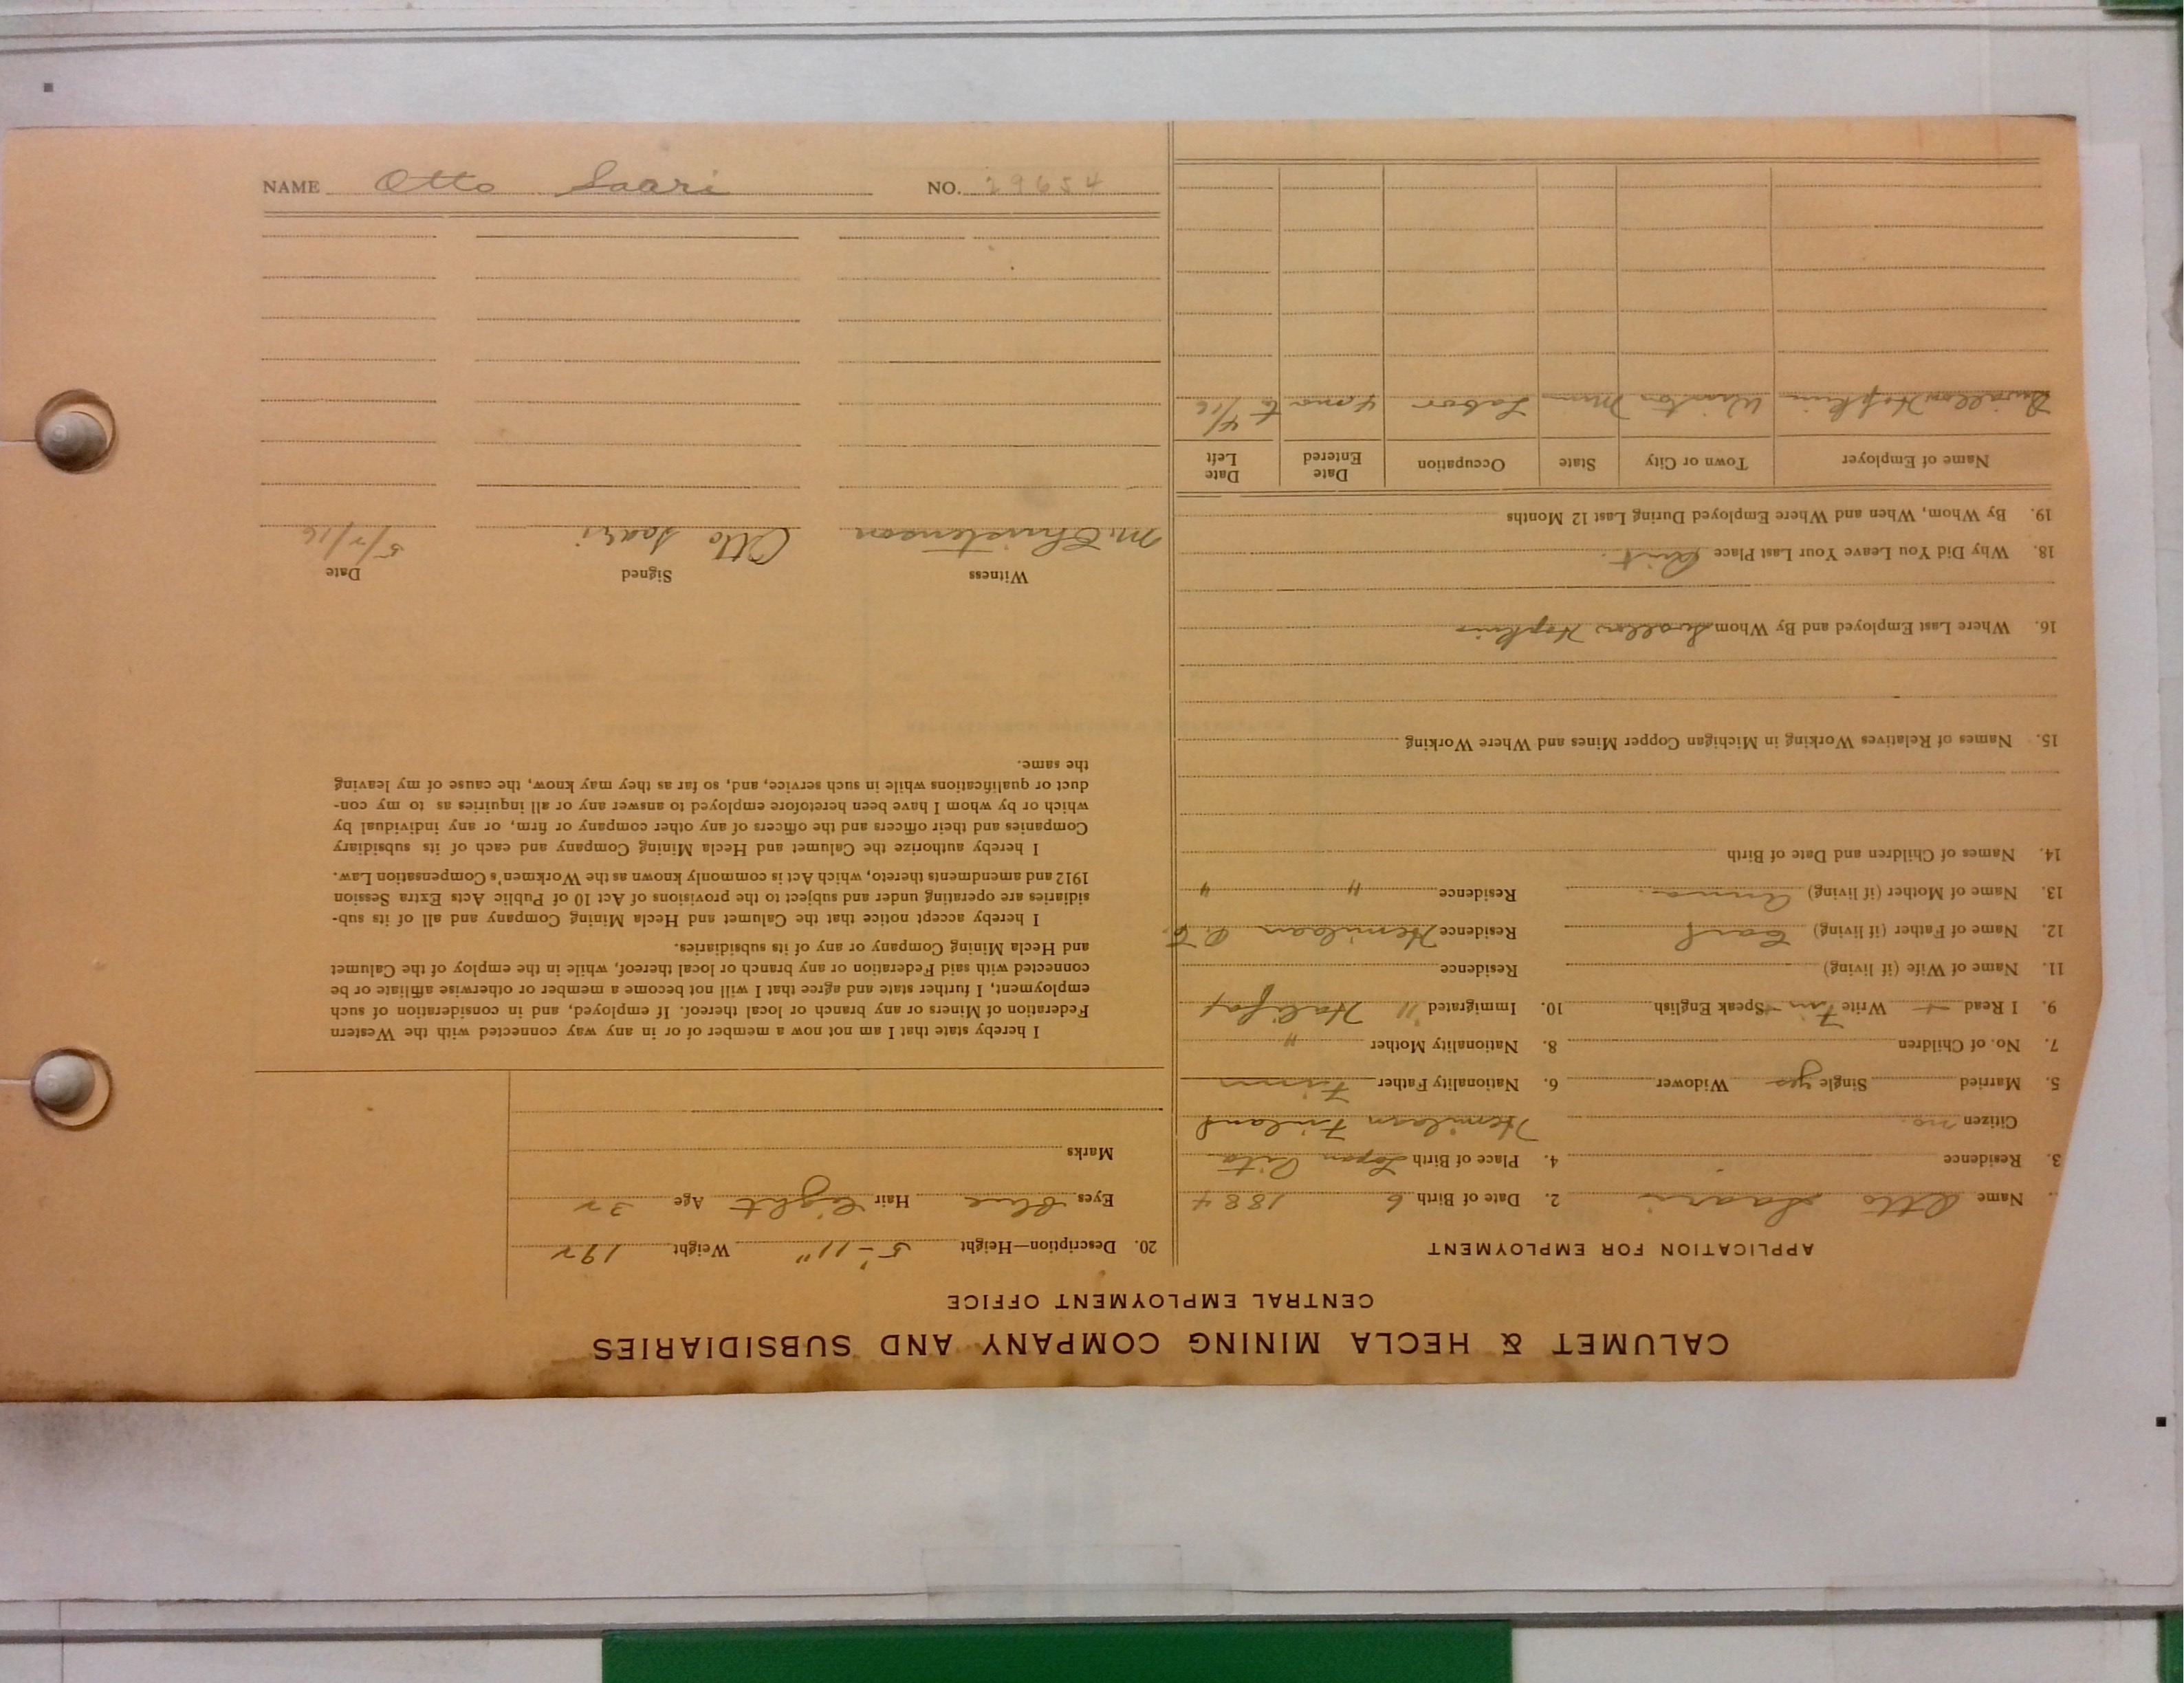 NAME Otto Saari NO. 29654
CALUMET & HECLA MINING COMPANY AND SUBSIDIARIES
CENTRAL EMPLOYMENT OFFICE
APPLICATION FOR EMPLOYMENT
Name Otto Saari 2. Date of Birth 6 1884
3. Residence 4. Place of Birth
Citizen no. Finland
5. Married Single yes Widower 6. Nationality Father Finn
7. No. of Children 8. Nationality Mother "
9. I Read Write Finn Speak English 10. Immigrated 11 Halifax
11. Name of Wife (if living) Residence
12. Name of Father (if living) Carl Residence
13. Name of Mother (if living) Anna Residence " "
14. Names of Children and Date of Birth
15. Names of Relatives Working in Michigan Copper Mines and Where Working
16. Where Last Employed and By Whom Swallow Hopkins
18. Why Did You Leave Your Last Place Quit
19. By Whom, When and Where Employed During Last 12 Months
Name of Employer Town or City State Occupation Date Entered Date Left
Swallow Hopkins Winton Minn Labor 4 mo to 4/16
20. Description—Height 5'-11" Weight 192
Eyes Blue Hair Light Age 32
Marks
I hereby state that I am not now a member of or in any way connected with the Western
Federation of Miners or any branch or local thereof. If employed, and in consideration of such
employment, I further state and agree that I will not become a member or otherwise affiliate or be
connected with said Federation or any branch or local thereof, while in the employ of the Calumet
and Hecla Mining Company or any of its subsidiaries.
I hereby accept notice that the Calumet and Hecla Mining Company and all of its sub-
sidiaries are operating under and subject to the provisions of Act 10 of Public Acts Extra Session
1912 and amendments thereto, which Act is commonly known as the Workmen's Compensation Law.
I hereby authorize the Calumet and Hecla Mining Company and each of its subsidiary
Companies and their officers and the officers of any other company or firm, or any individual by
which or by whom I have been heretofore employed to answer any or all inquiries as to my con-
duct or qualifications while in such service, and, so far as they may know, the cause of my leaving
the same.
Witness Signed Date
M. Christenson Otto Saari 5/2/16